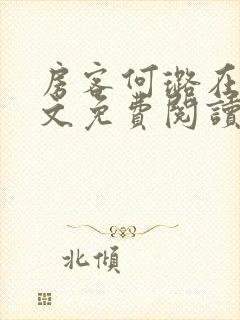 房客何璐在
文免費閱讀
北傾